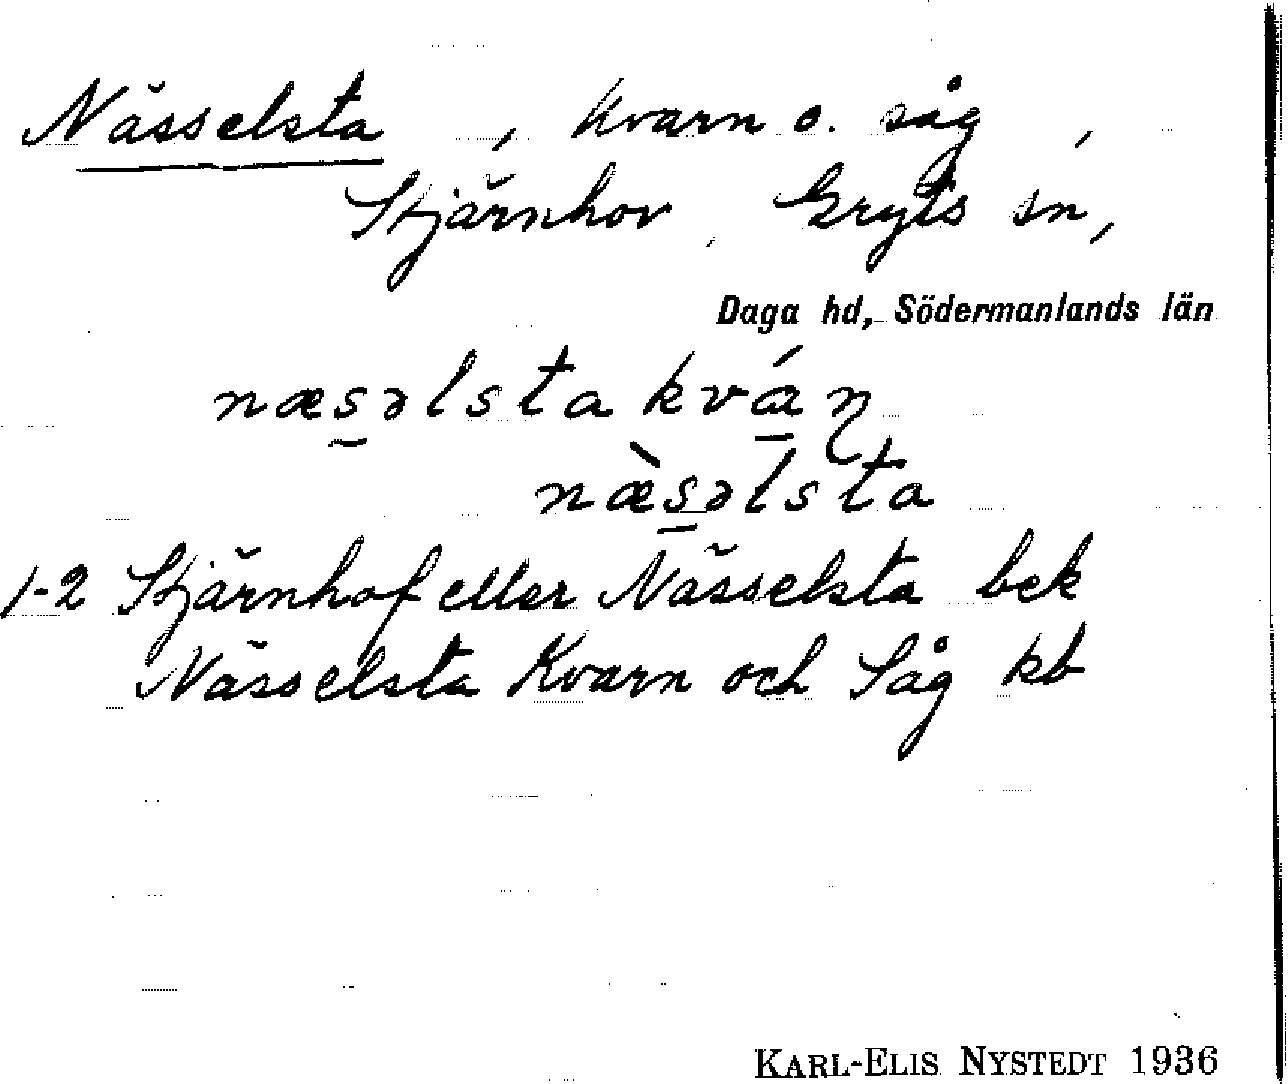 Nässelsta, kvarn o. såg,
Stjärnhov, Gryts sn,
Daga hd, Södermanlands län
næs̠əlstakvá̠ɳ
næ̀s̠əlsta
1-2 Stjärnhof eller Nässelsta bek
Nässelsta Kvarn och Såg kb
KARL-ELIS NYSTEDT 1936